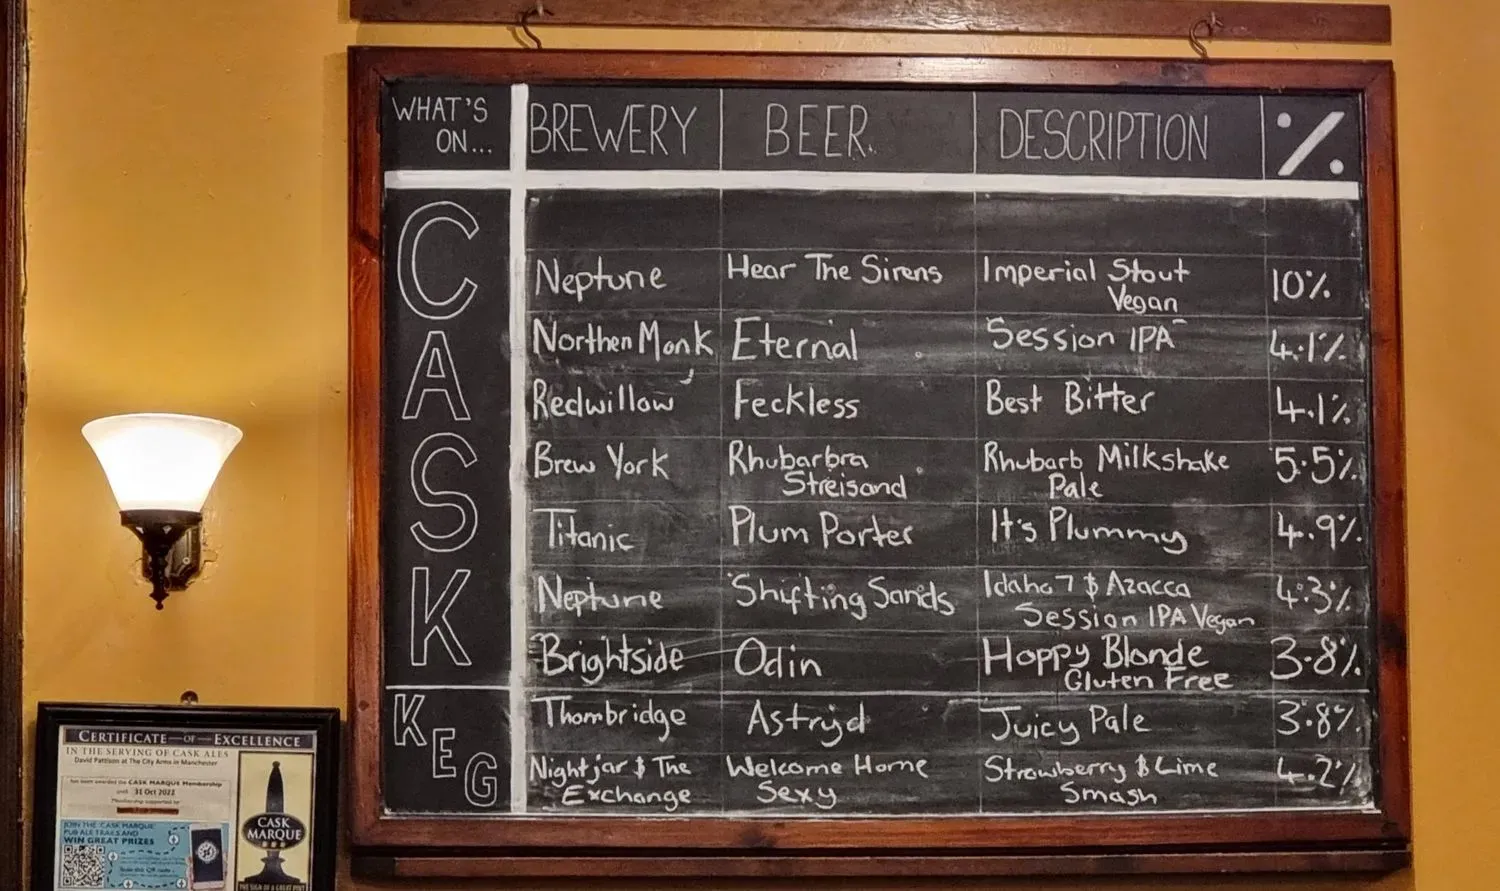 WHAT'S ON... BREWERY BEER. DESCRIPTION %
CASK
Neptune Hear The Sirens Imperial Stout Vegan 10%
Northen Monk Eternal Session IPA 4.1%
Redwillow Feckless Best Bitter 4.1%
Brew York Rhubarbra Streisand Rhubarb Milkshake Pale 5.5%
Titanic Plum Porter It's Plummy 4.9%
Neptune Shifting Sands Idaho 7 & Azacca Session IPA Vegan 4.3%
Brightside Odin Hoppy Blonde Gluten Free 3.8%
KEG
Thornbridge Astryd Juicy Pale 3.8%
Nightjar & The Exchange Welcome Home Sexy Strawberry & Lime Smash 4.2%
CERTIFICATE OF EXCELLENCE
IN THE SERVING OF CASK ALES
David Pattison at The City Arms in Manchester
has been awarded the CASK MARQUE Membership
until 31 Oct 2022
Membership supported by
JOIN THE CASK MARQUE
PUB ALE TRAILS AND
WIN GREAT PRIZES
CASK
MARQUE
THE SIGN OF A GREAT PINT